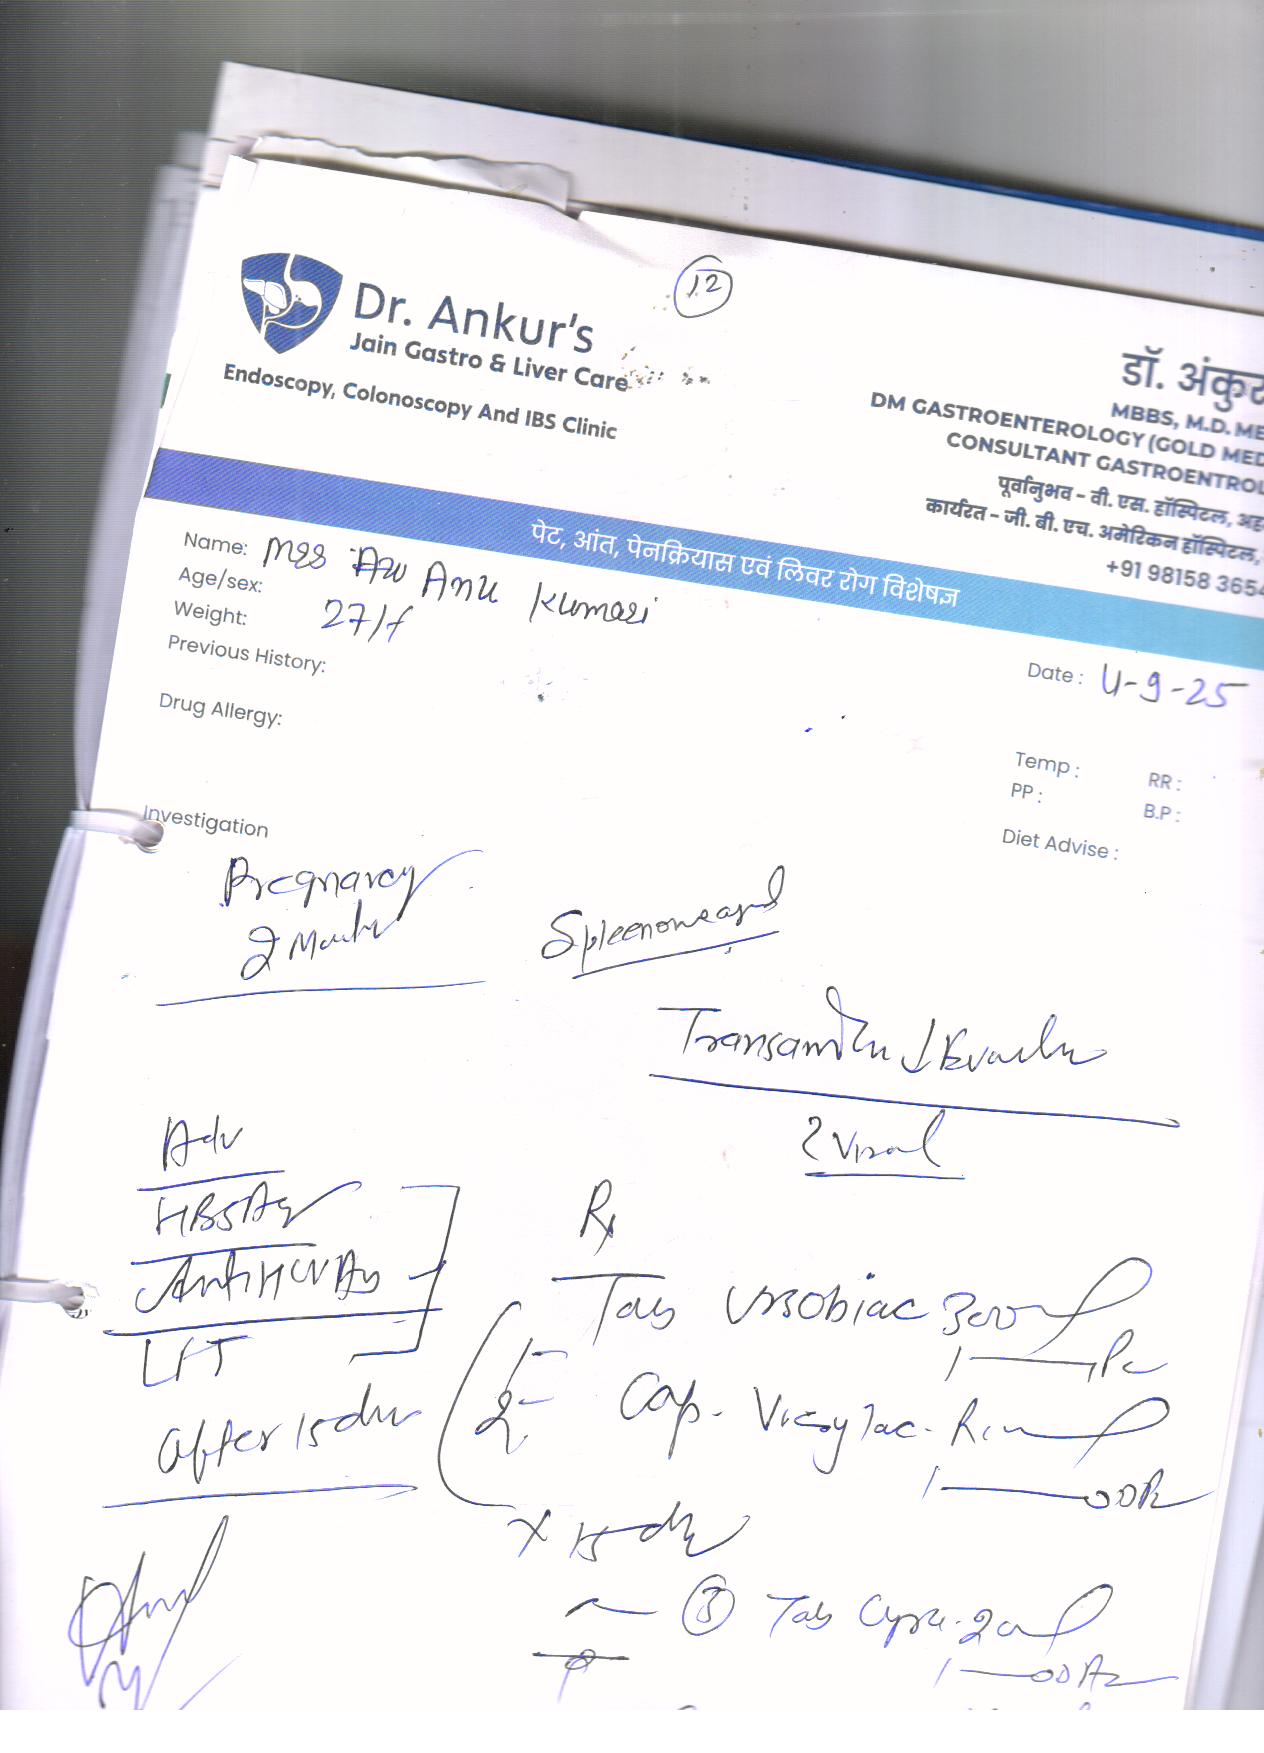 12
Dr. Ankur's
Jain Gastro & Liver Care
Endoscopy, Colonoscopy And IBS Clinic
डॉ. अंकुर
MBBS, M.D. ME
DM GASTROENTEROLOGY (GOLD MED
CONSULTANT GASTROENTROL
पूर्वानुभव - वी. एस. हॉस्पिटल, अह
कार्यरत - जी. बी. एच. अमेरिकन हॉस्पिटल,
+91 98158 3654
पेट, आंत, पेनक्रियास एवं लिवर रोग विशेषज्ञ
Name: Mss Anu Kumari
Age/sex: 27/f
Weight:
Previous History:
Date: 4-9-25
Drug Allergy:
Temp: RR:
PP: B.P:
Diet Advise:
Investigation
Pregnancy
2 Month
Spleenomegaly
? Viral
Adv
HBSAg
Anti HCV Ab
LFT
After 15 day
Rx
Tab 300
1
2 Cap.
1
X 15 day
3 Tab
1